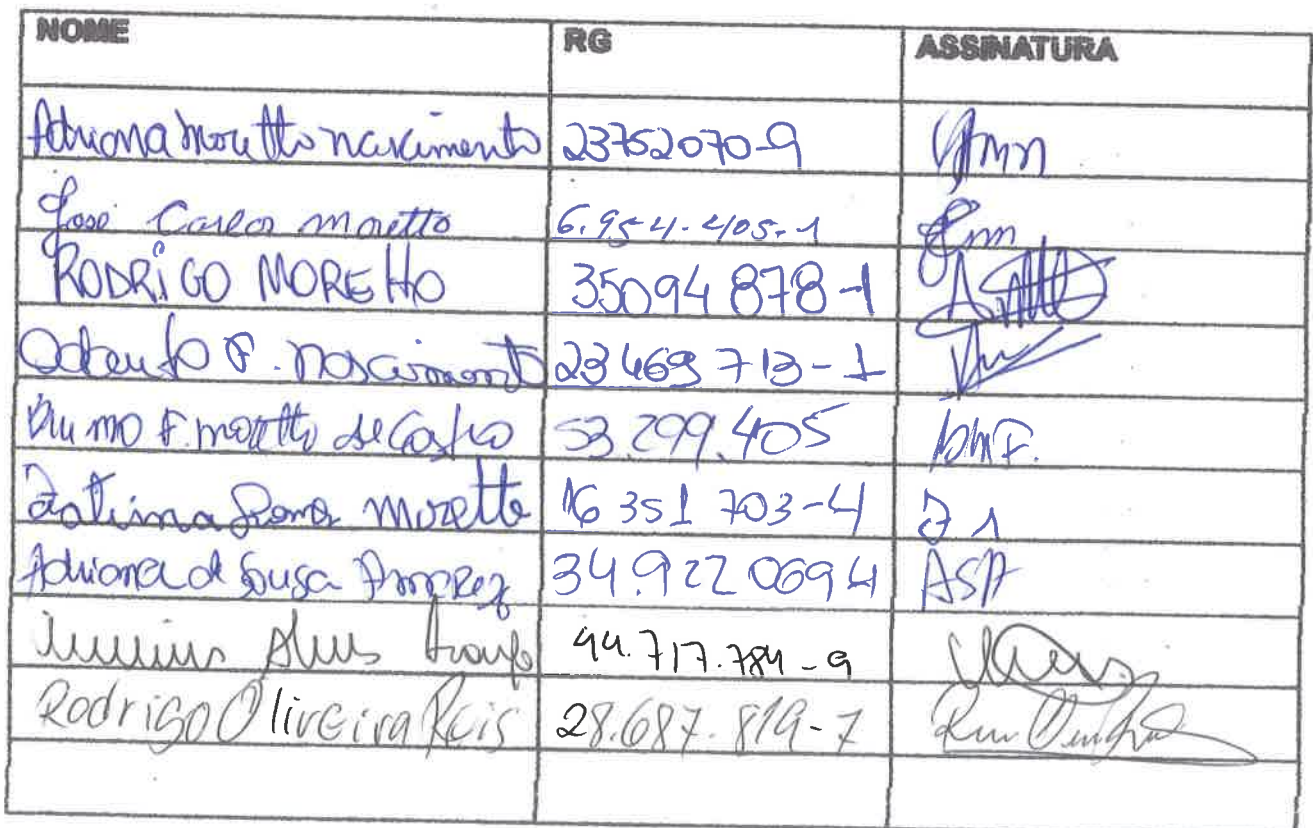 NOME RG ASSINATURA
Adriana Moretto nascimento 23752070-9
José Carlos Moretto 6.954.405-1
RODRIGO MORETTO 35094878-1
F. Nascimento 23469713-1
Bruno F. Moretto de Castro 53.299.405 BMF.
Fatima Moretto 16 351 703-4
Adriana de Sousa 34.922 0694 ASA
Alves 44.717.784-9
Rodrigo Oliveira Reis 28.687.819-7